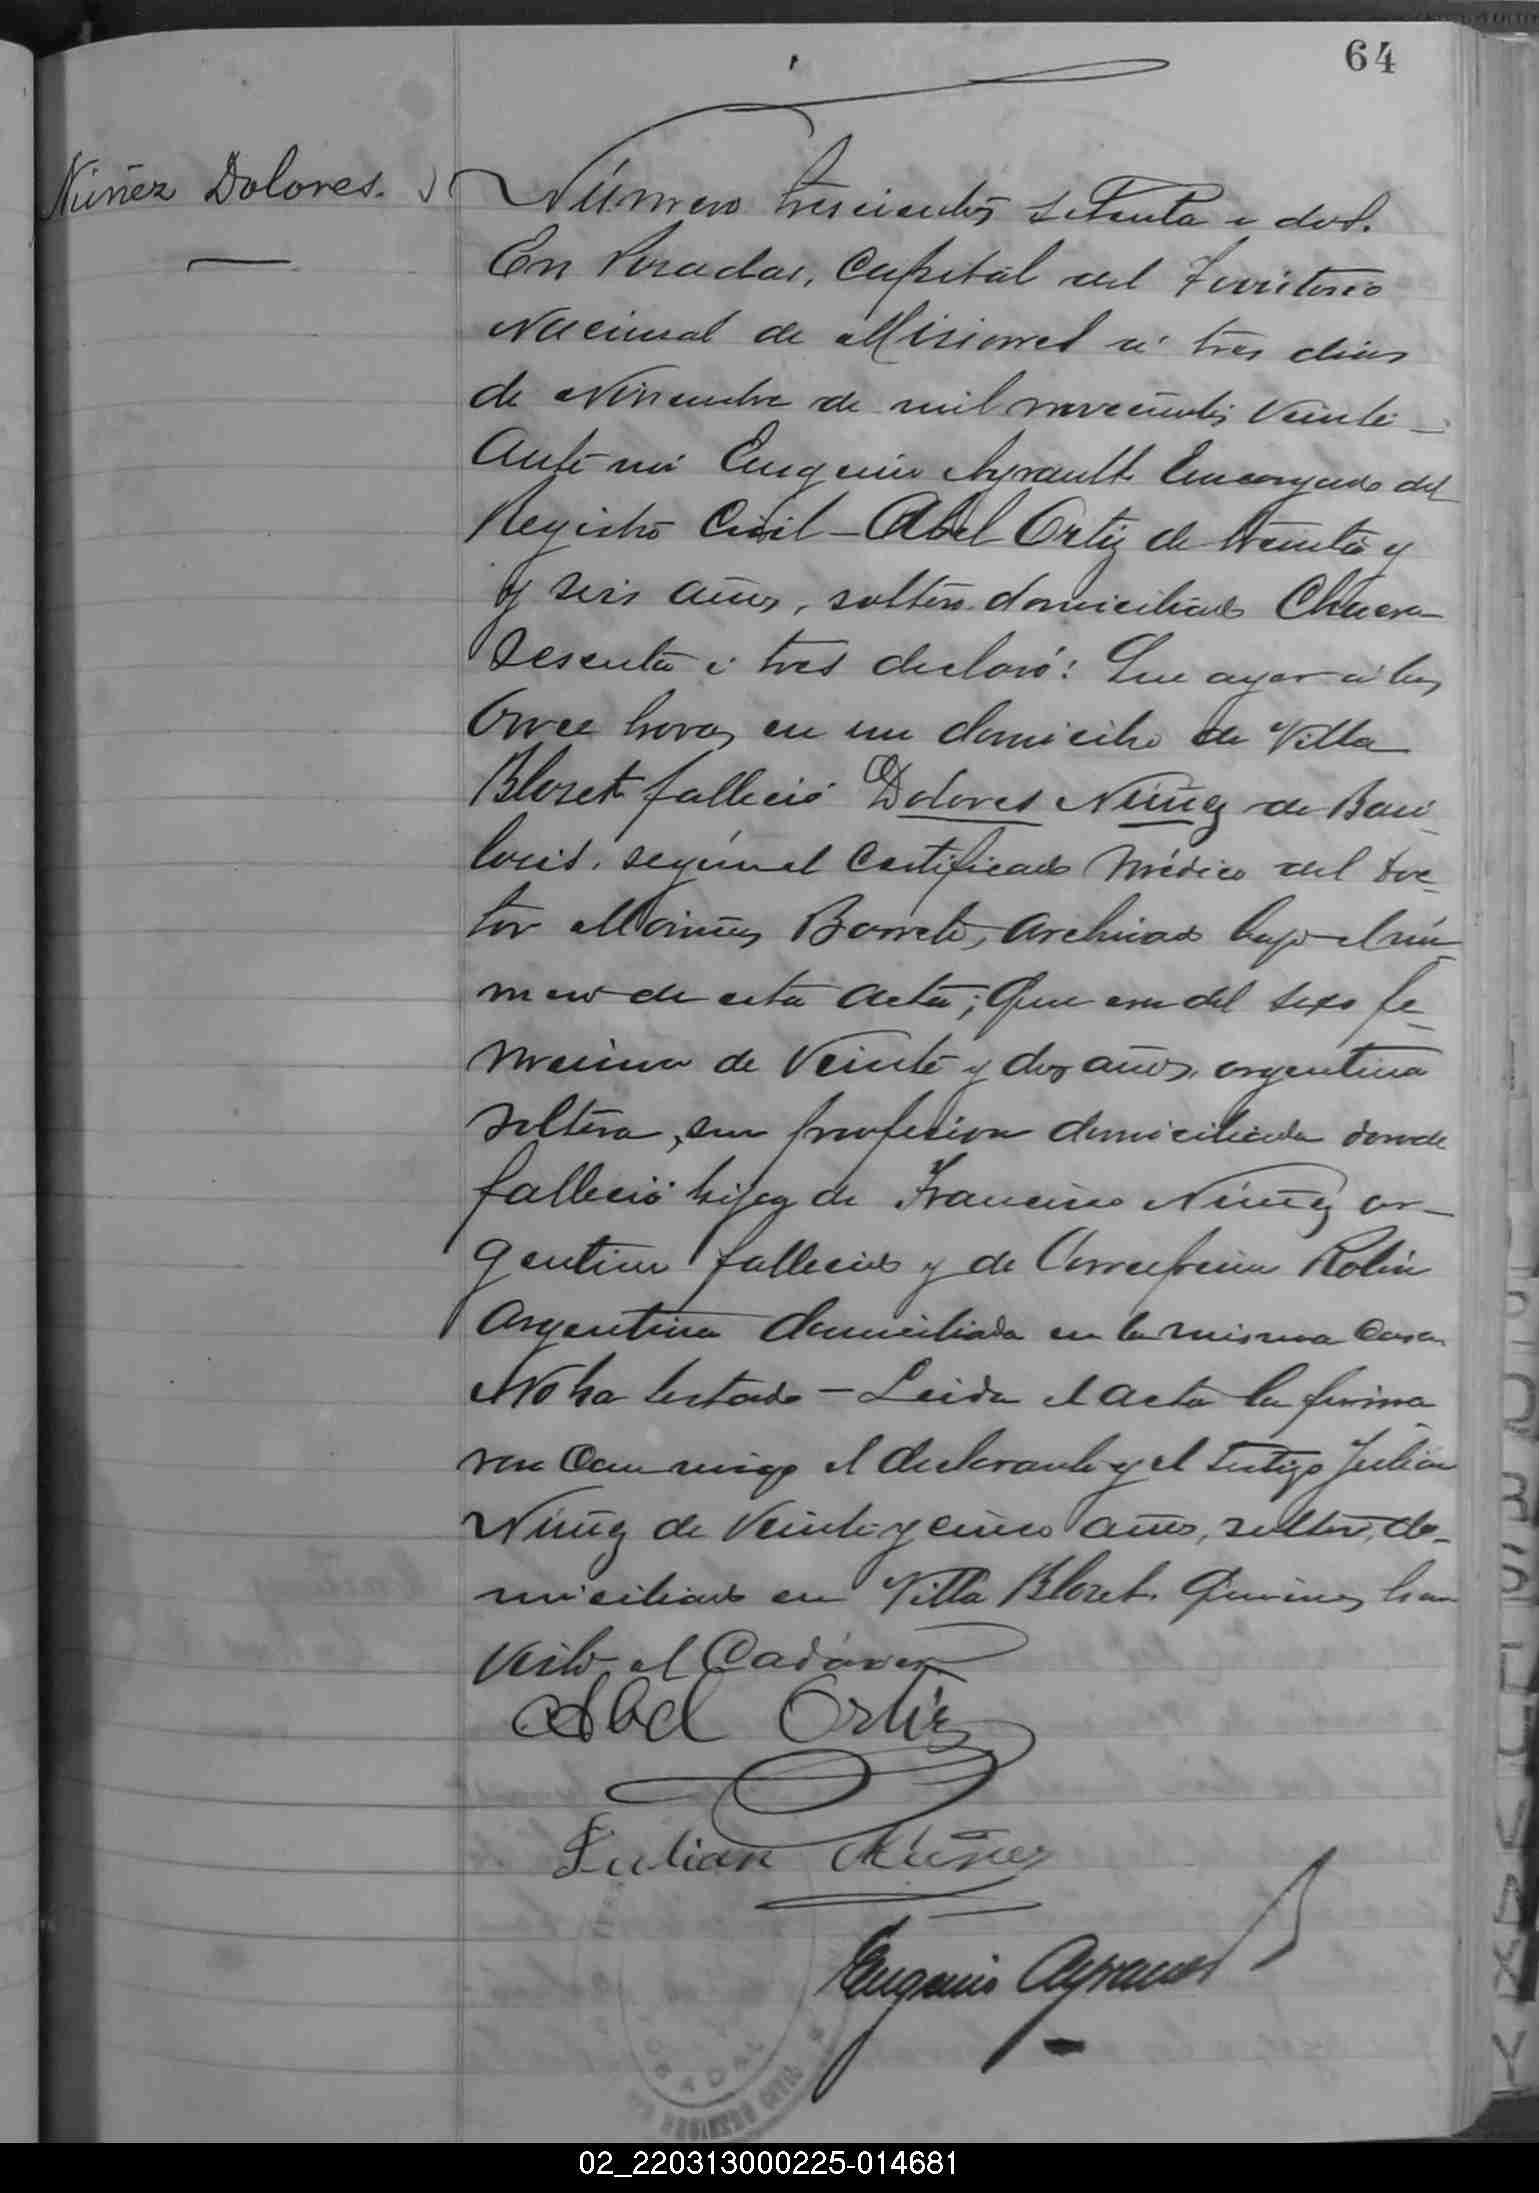 64
Núñez Dolores.
Número trescientos setenta i dos.
En Posadas, Capital del Territorio
Nacional de Misiones á tres dias
de Noviembre de mil novecientos veinte
Ante mi Eugenio Ayrault Encargado del
Registro Civil – Abel Ortiz de treinta y
y seis años, soltero domiciliado Chacra
Sesenta i tres declaró: Que ayer á las
Once horas en un domicilio de Villa
Blosset falleció Dolores Núñez de
según el Certificado Médico del doc-
tor Barreto, archivado bajo el nú-
mero de esta acta; Que era del sexo fe-
menino de Veinte y dos años, argentina
soltera, sin profesion domiciliada donde
falleció hija de Francisco Núñez ar-
gentino fallecido y de Concepcion Rolin
Argentina domiciliada en la misma Casa
No ha testado – Leida el acta la firma
ron Conmigo el declarante y el testigo Julian
Núñez de Veinte y cinco años, soltero, do-
miciliado en Villa Blosset Quienes han
Visto el Cadáver
Abel Ortiz
Julian Núñez
Eugenio Ayrault
02_220313000225-014681